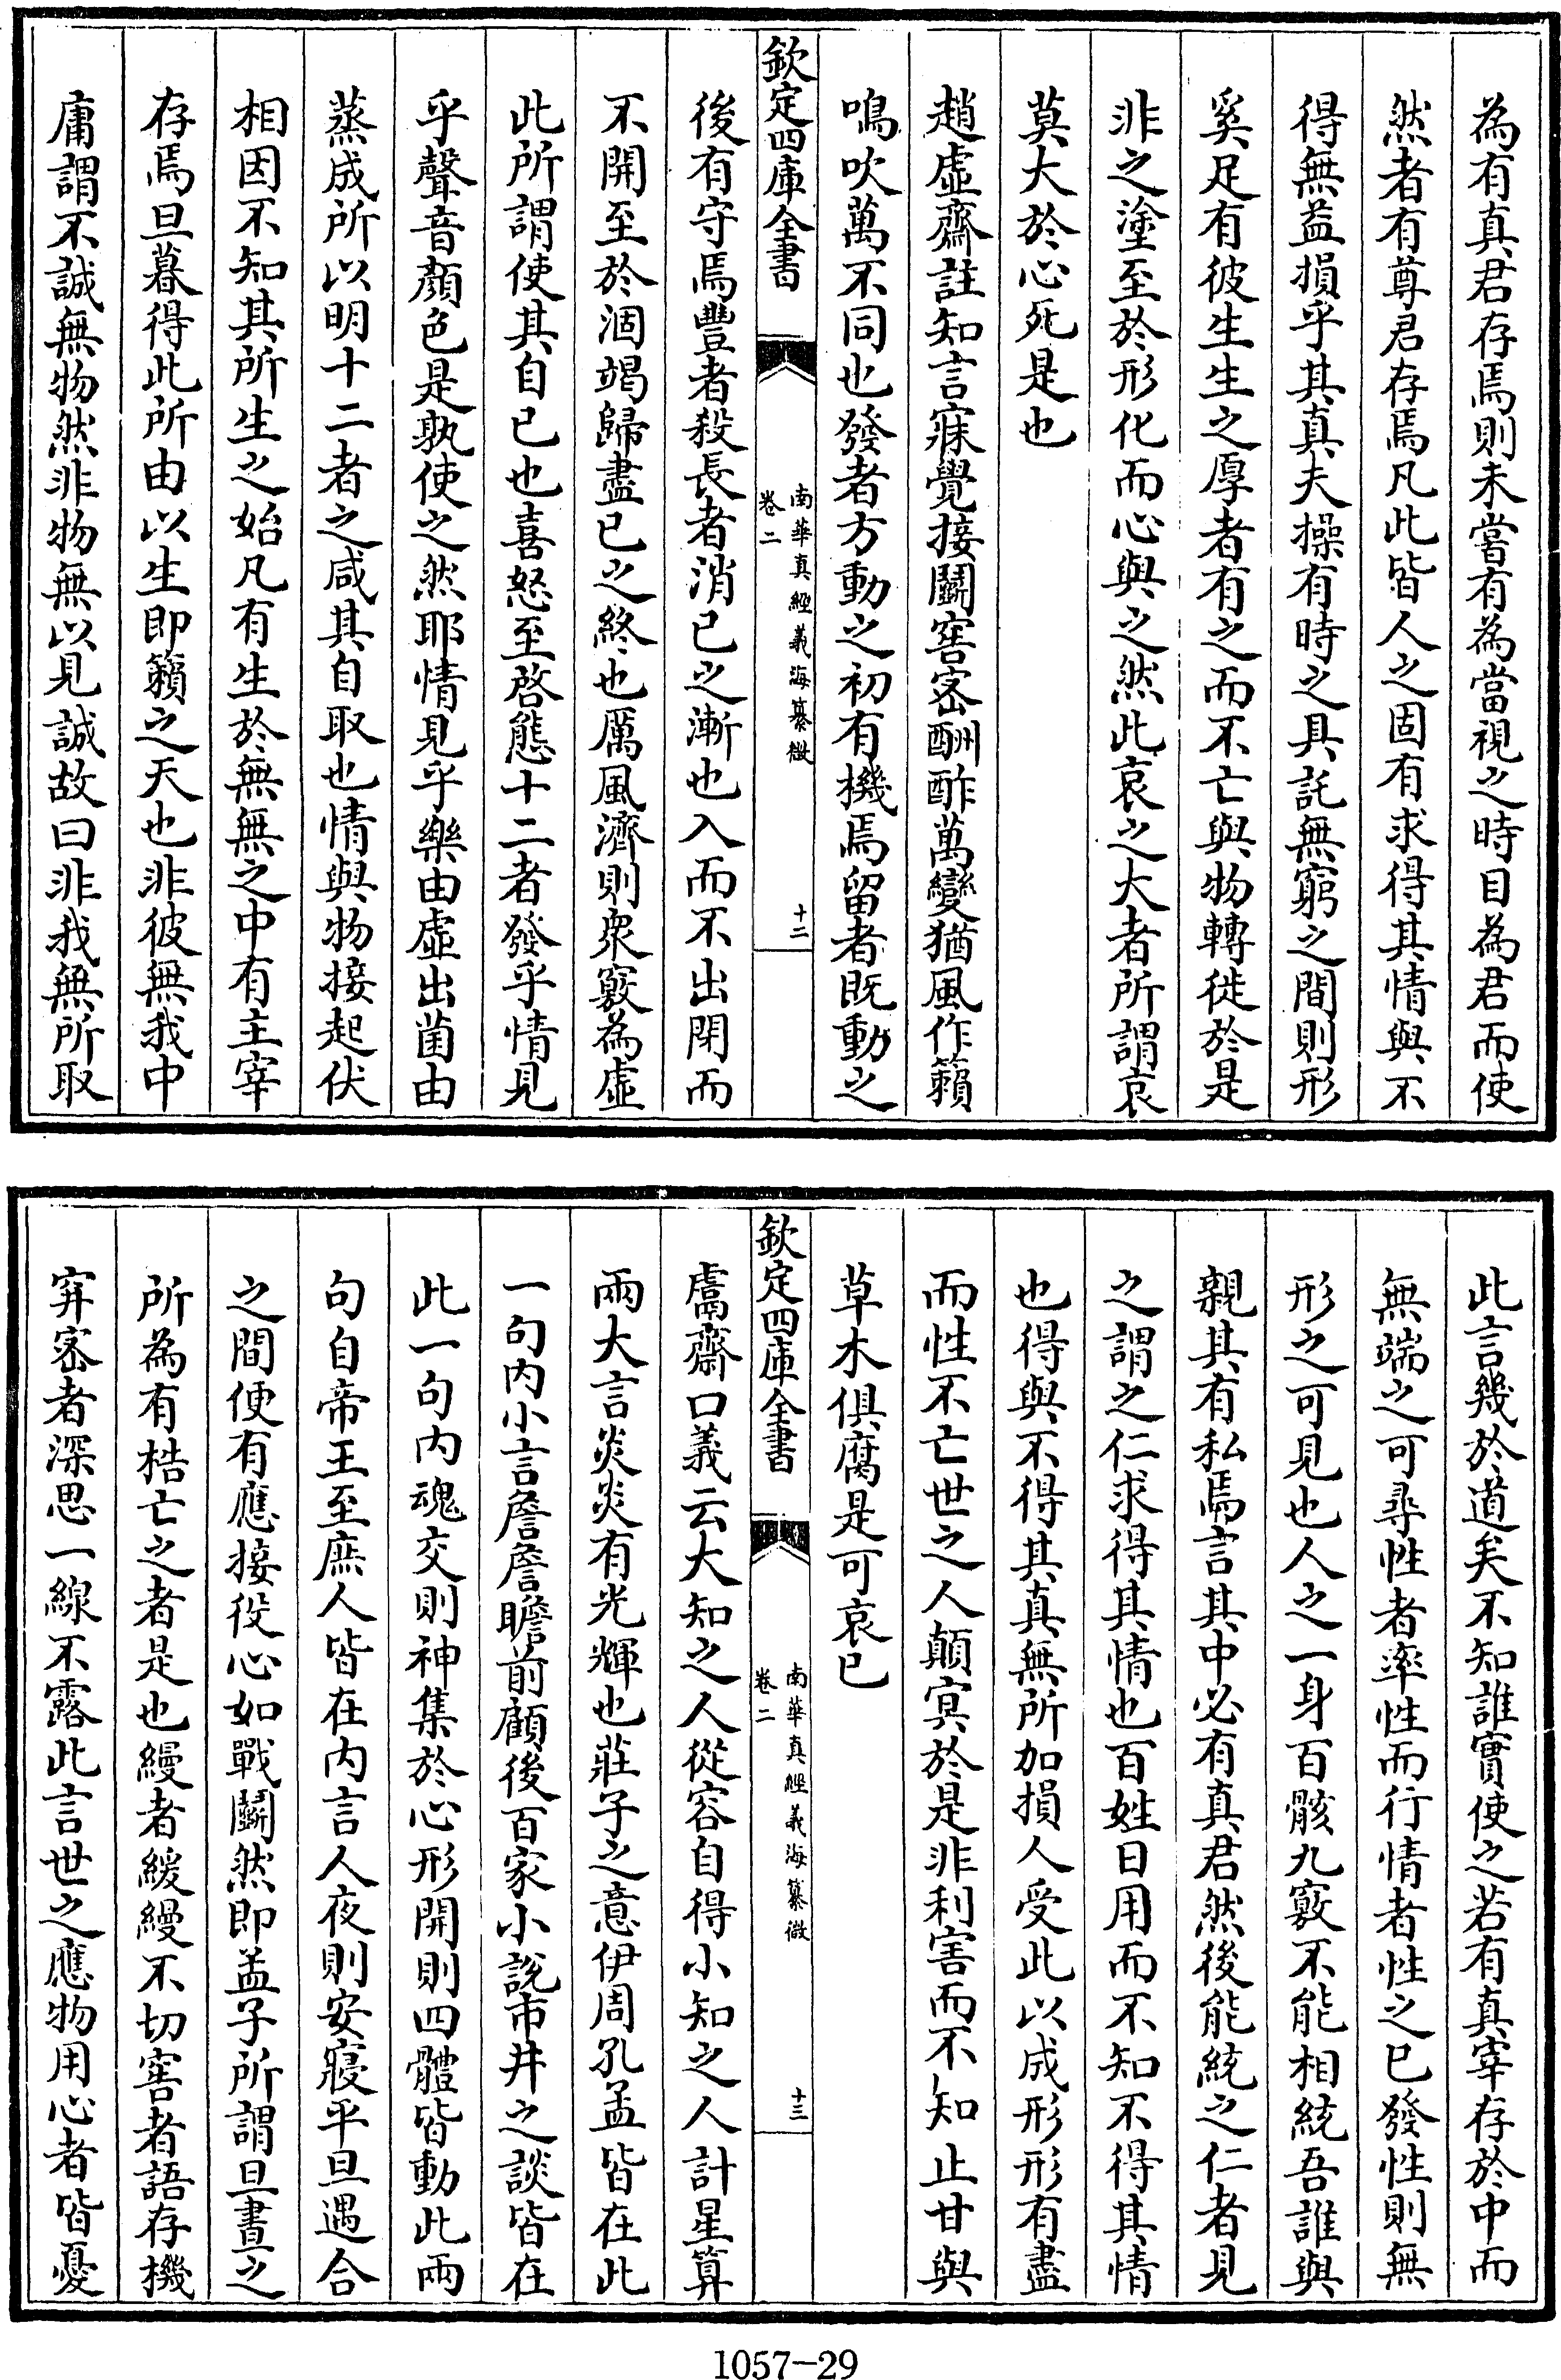 為有真君存焉則未嘗有為當視之時目為君而使
然者有尊君存焉凡此皆人之固有求得其情與不
得無益損乎其真夫操有時之具託無窮之間則形
奚足有彼生生之厚者有之而不亡與物轉徙於是
非之塗至於形化而心與之然此哀之大者所謂哀
莫大於心死是也
趙虛齋註知言寐覺接鬭窖宻酬酢萬變猶風作籟
鳴吹萬不同也發者方動之初有機焉留者既動之
欽定四庫全書
南華真經義海纂微
卷二
十二
後有守焉豐者殺長者消已之漸也入而不出閉而
不開至於涸竭歸盡已之終也厲風濟則衆竅為虛
此所謂使其自已也喜怒至啓態十二者發乎情見
乎聲音顏色是孰使之然耶情見乎樂由虛出菌由
蒸成所以明十二者之咸其自取也情與物接起伏
相因不知其所生之始凡有生於無無之中有主宰
存焉旦暮得此所由以生即籟之天也非彼無我中
庸謂不誠無物然非物無以見誠故曰非我無所取
此言幾於道矣不知誰實使之若有真宰存於中而
無端之可尋性者率性而行情者性之已發性則無
形之可見也人之一身百骸九竅不能相統吾誰與
親其有私焉言其中必有真君然後能統之仁者見
之謂之仁求得其情也百姓日用而不知不得其情
也得與不得其真無所加損人受此以成形形有盡
而性不亡世之人顛冥於是非利害而不知止甘與
草木俱腐是可哀已
欽定四庫全書
南華真經義海纂微
卷二
十三
鬳齋口義云大知之人從容自得小知之人計星算
兩大言炎炎有光輝也莊子之意伊周孔孟皆在此
一句内小言詹詹瞻前顧後百家小說市井之談皆在
此一句内魂交則神集於心形開則四體皆動此兩
句自帝王至庶人皆在内言人夜則安寢平旦遇合
之間便有應接役心如戰鬭然即孟子所謂旦晝之
所為有梏亡之者是也縵者緩縵不切窖者語存機
穽宻者深思一線不露此言世之應物用心者皆憂
1057-29